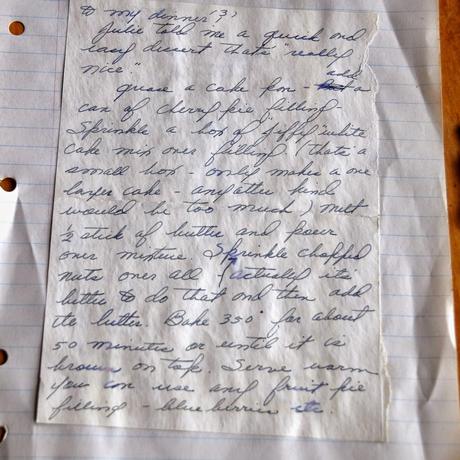 to my dinner!?
Julie told me a quick and
easy dessert that's "really
nice."
grease a cake pan - add a
can of cherry pie filling -
Sprinkle a box of "Jiffy" white
cake mix over filling (that's a
small box - only makes a one
layer cake - any other kind
would be too much) Melt
1/2 stick of butter and pour
over mixture. Sprinkle chopped
nuts over all (actually it's
better to do that and then add
the butter. Bake 350° for about
50 minutes or until it is
brown on top. Serve warm
You can use any fruit pie
filling - blueberries etc.